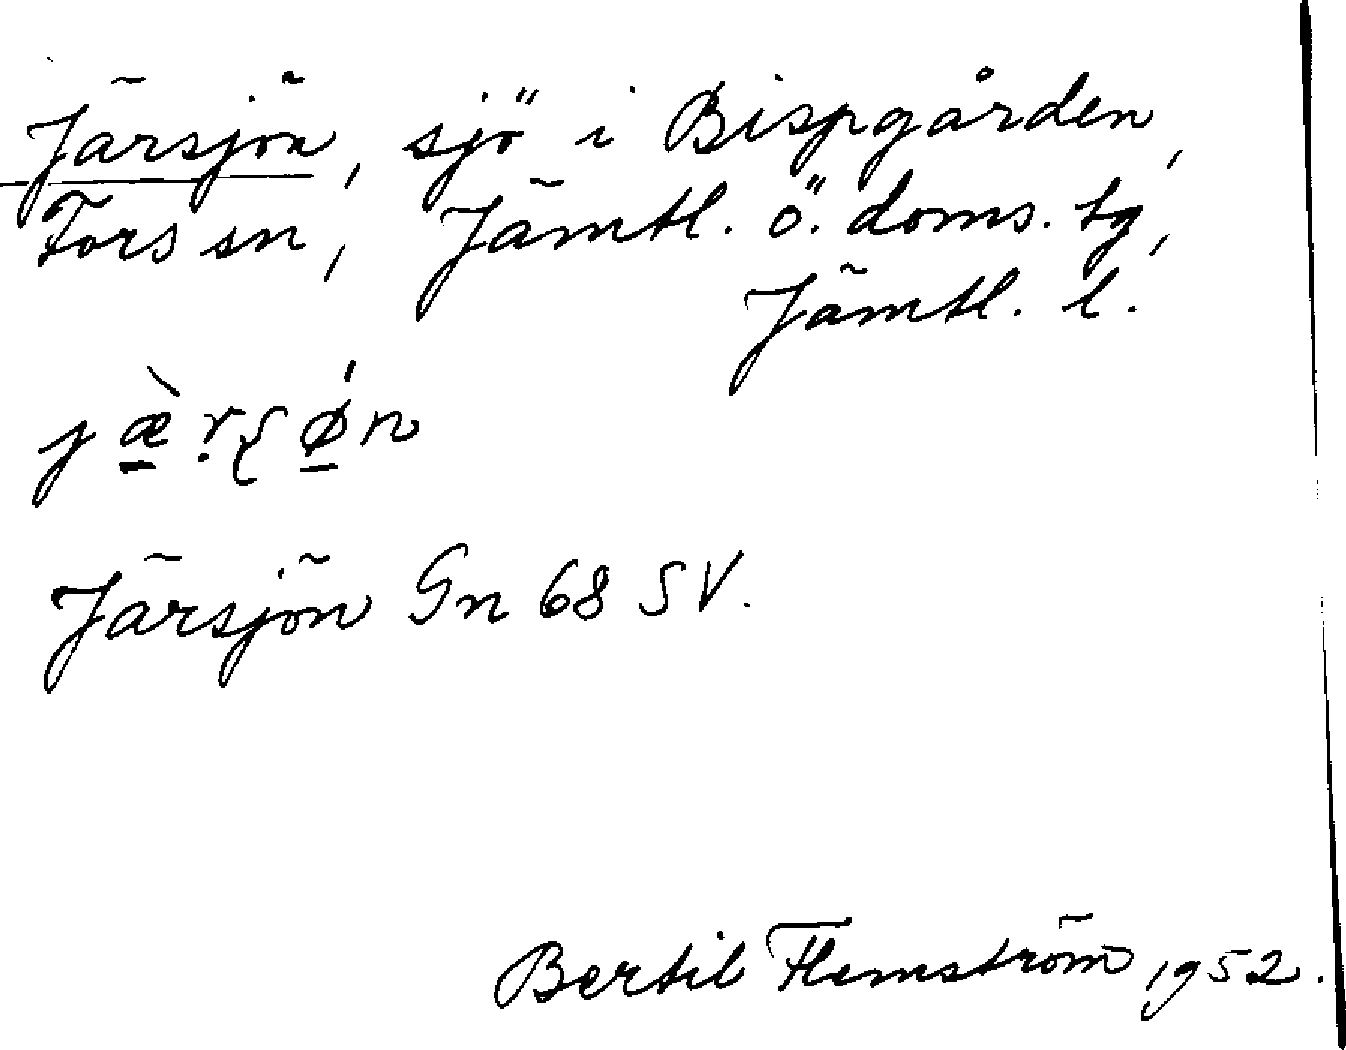 Järsjön, sjö i Bispgården,
Fors sn, Jämtl. ö. doms. tg,
Jämtl. l.
jæ̀ṛʂǿn
Järsjön Gn 68 SV.
Bertil Flemström 1952.